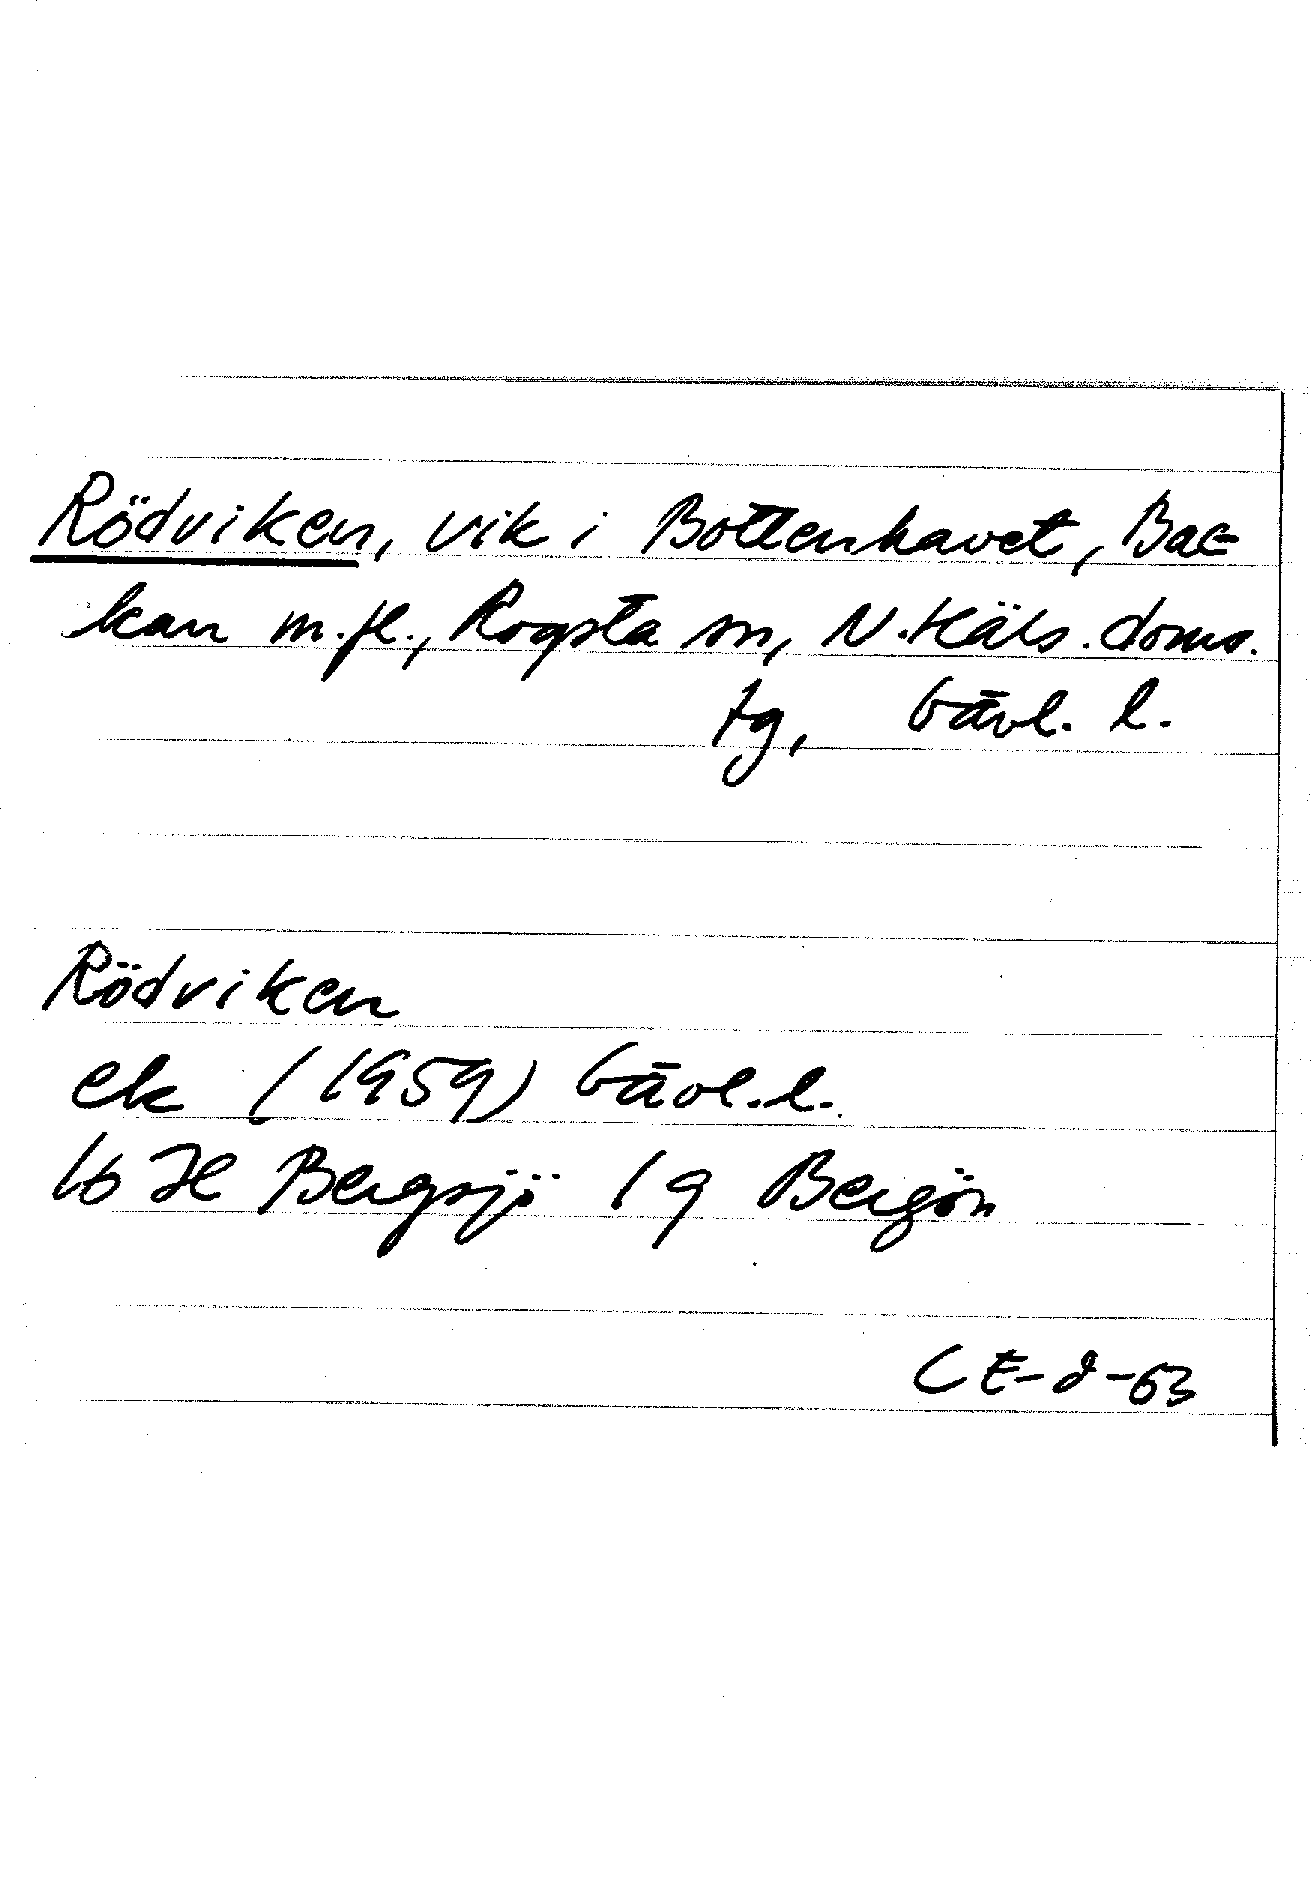 Rödviken, vik i Bottenhavet, Bac-
kan m.fl., Rogsta sn, N.Häls. doms.
tg, Gävl. l.
Rödviken
ek (1959) Gävl.l.
16 H Bergsjö 1 g Bergön
CE-8-63